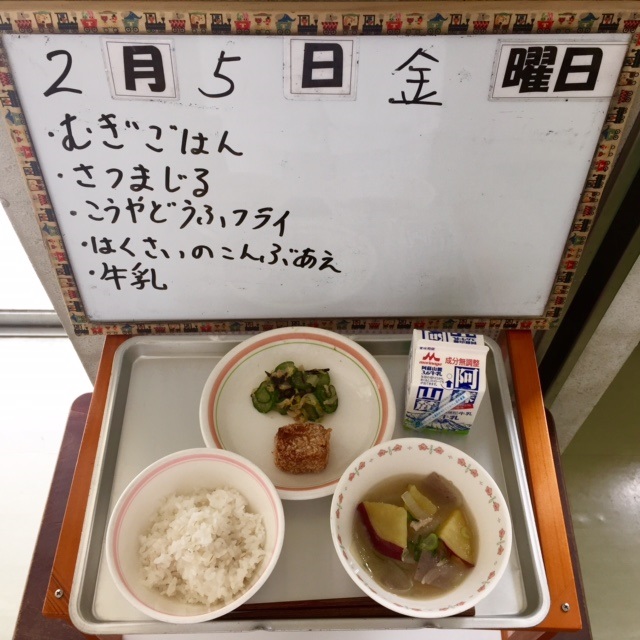 2月5日金曜日
・むぎごはん
・さつまじる
・こうやどうふフライ
・はくさいのこんぶあえ
・牛乳
成分無調整